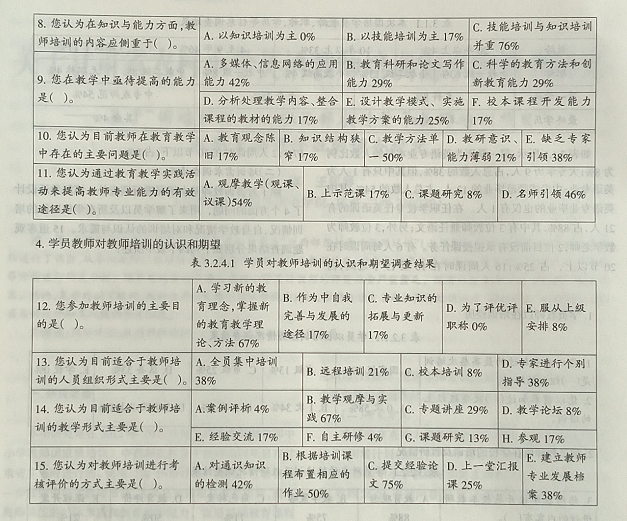 8. 您认为在知识与能力方面,教师培训的内容应侧重于( )。
A. 以知识培训为主 0%
B. 以技能培训为主 17%
C. 技能培训与知识培训并重 76%
9. 您在教学中亟待提高的能力是( )。
A. 多媒体、信息网络的应用能力 42%
B. 教育科研和论文写作能力 29%
C. 科学的教育方法和创新教育能力 29%
D. 分析处理教学内容、整合课程的教材的能力 17%
E. 设计教学模式、实施教学方案的能力 25%
F. 校本课程开发能力 17%
10. 您认为目前教师在教育教学中存在的主要问题是( )。
A. 教育观念陈旧 17%
B. 知识结构狭窄 17%
C. 教学方法单一 50%
D. 教研意识、能力薄弱 21%
E. 缺乏专家引领 38%
11. 您认为通过教育教学实践活动来提高教师专业能力的有效途径是( )。
A. 观摩教学(观课、议课)54%
B. 上示范课 17%
C. 课题研究 8%
D. 名师引领 46%
4. 学员教师对教师培训的认识和期望
表 3.2.4.1 学员对教师培训的认识和期望调查结果
12. 您参加教师培训的主要目的是( )。
A. 学习新的教育理念,掌握新的教育教学理论、方法 67%
B. 作为中自我完善与发展的途径 17%
C. 专业知识的拓展与更新 17%
D. 为了评优评职称 0%
E. 服从上级安排 8%
13. 您认为目前适合于教师培训的人员组织形式主要是( )。
A. 全员集中培训 38%
B. 远程培训 21%
C. 校本培训 8%
D. 专家进行个别指导 38%
14. 您认为目前适合于教师培训的教学形式主要是( )。
A.案例评析 4%
B. 教学观摩与实践 67%
C. 专题讲座 29%
D. 教学论坛 8%
E. 经验交流 17%
F. 自主研修 4%
G. 课题研究 13%
H. 参观 17%
15. 您认为对教师培训进行考核评价的方式主要是( )。
A. 对通识知识的检测 42%
B. 根据培训课程布置相应的作业 50%
C. 提交经验论文 75%
D. 上一堂汇报课 25%
E. 建立教师专业发展档案 38%